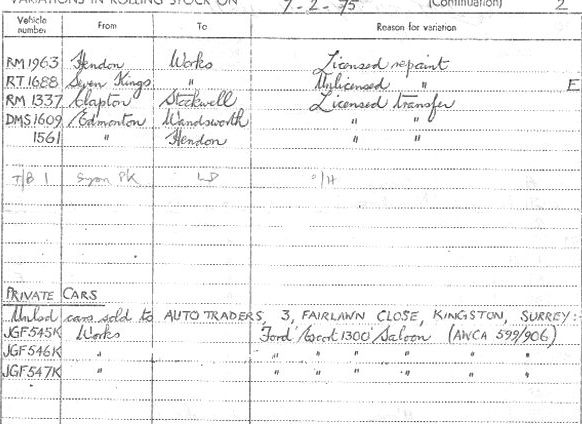 VARIATIONS IN ROLLING STOCK ON 7-2-75 (Continuation) 2
Vehicle number From To Reason for variation
RM 1963 Hendon Works Licensed repaint
RT 1688 Seven Kings " Unlicensed " E
RM 1337 Clapton Stockwell Licensed transfer
DMS 1609 Edmonton Wandsworth " "
1561 " Hendon " "
T/B 1 Syon Pk LP °/H
PRIVATE CARS
Unlsd cars sold to AUTO TRADERS, 3, FAIRLAWN CLOSE, KINGSTON, SURREY:-
JGF545K Works 'Ford' Escort 1300 Saloon (AWCA 599/906)
JGF546K " " " " " " "
JGF547K " " " " " " "